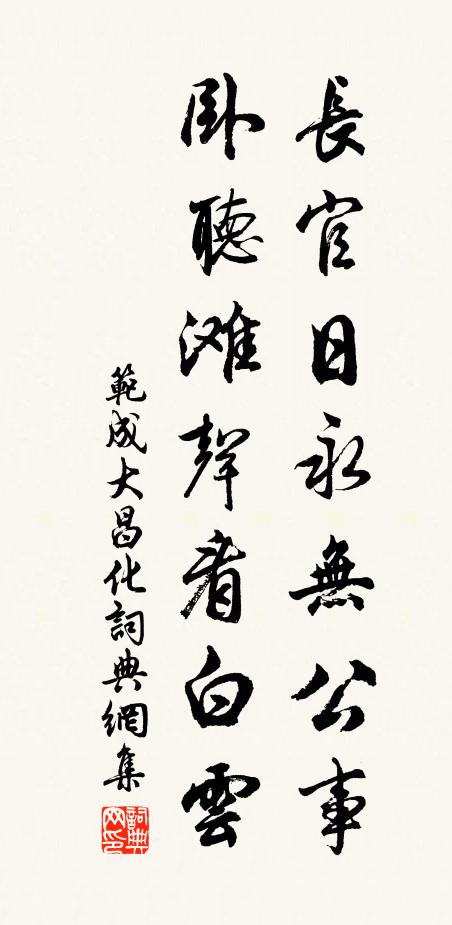 長官日永無公事
卧聽滩聲看白雲
範成大昌化詞典網集
詞典网印